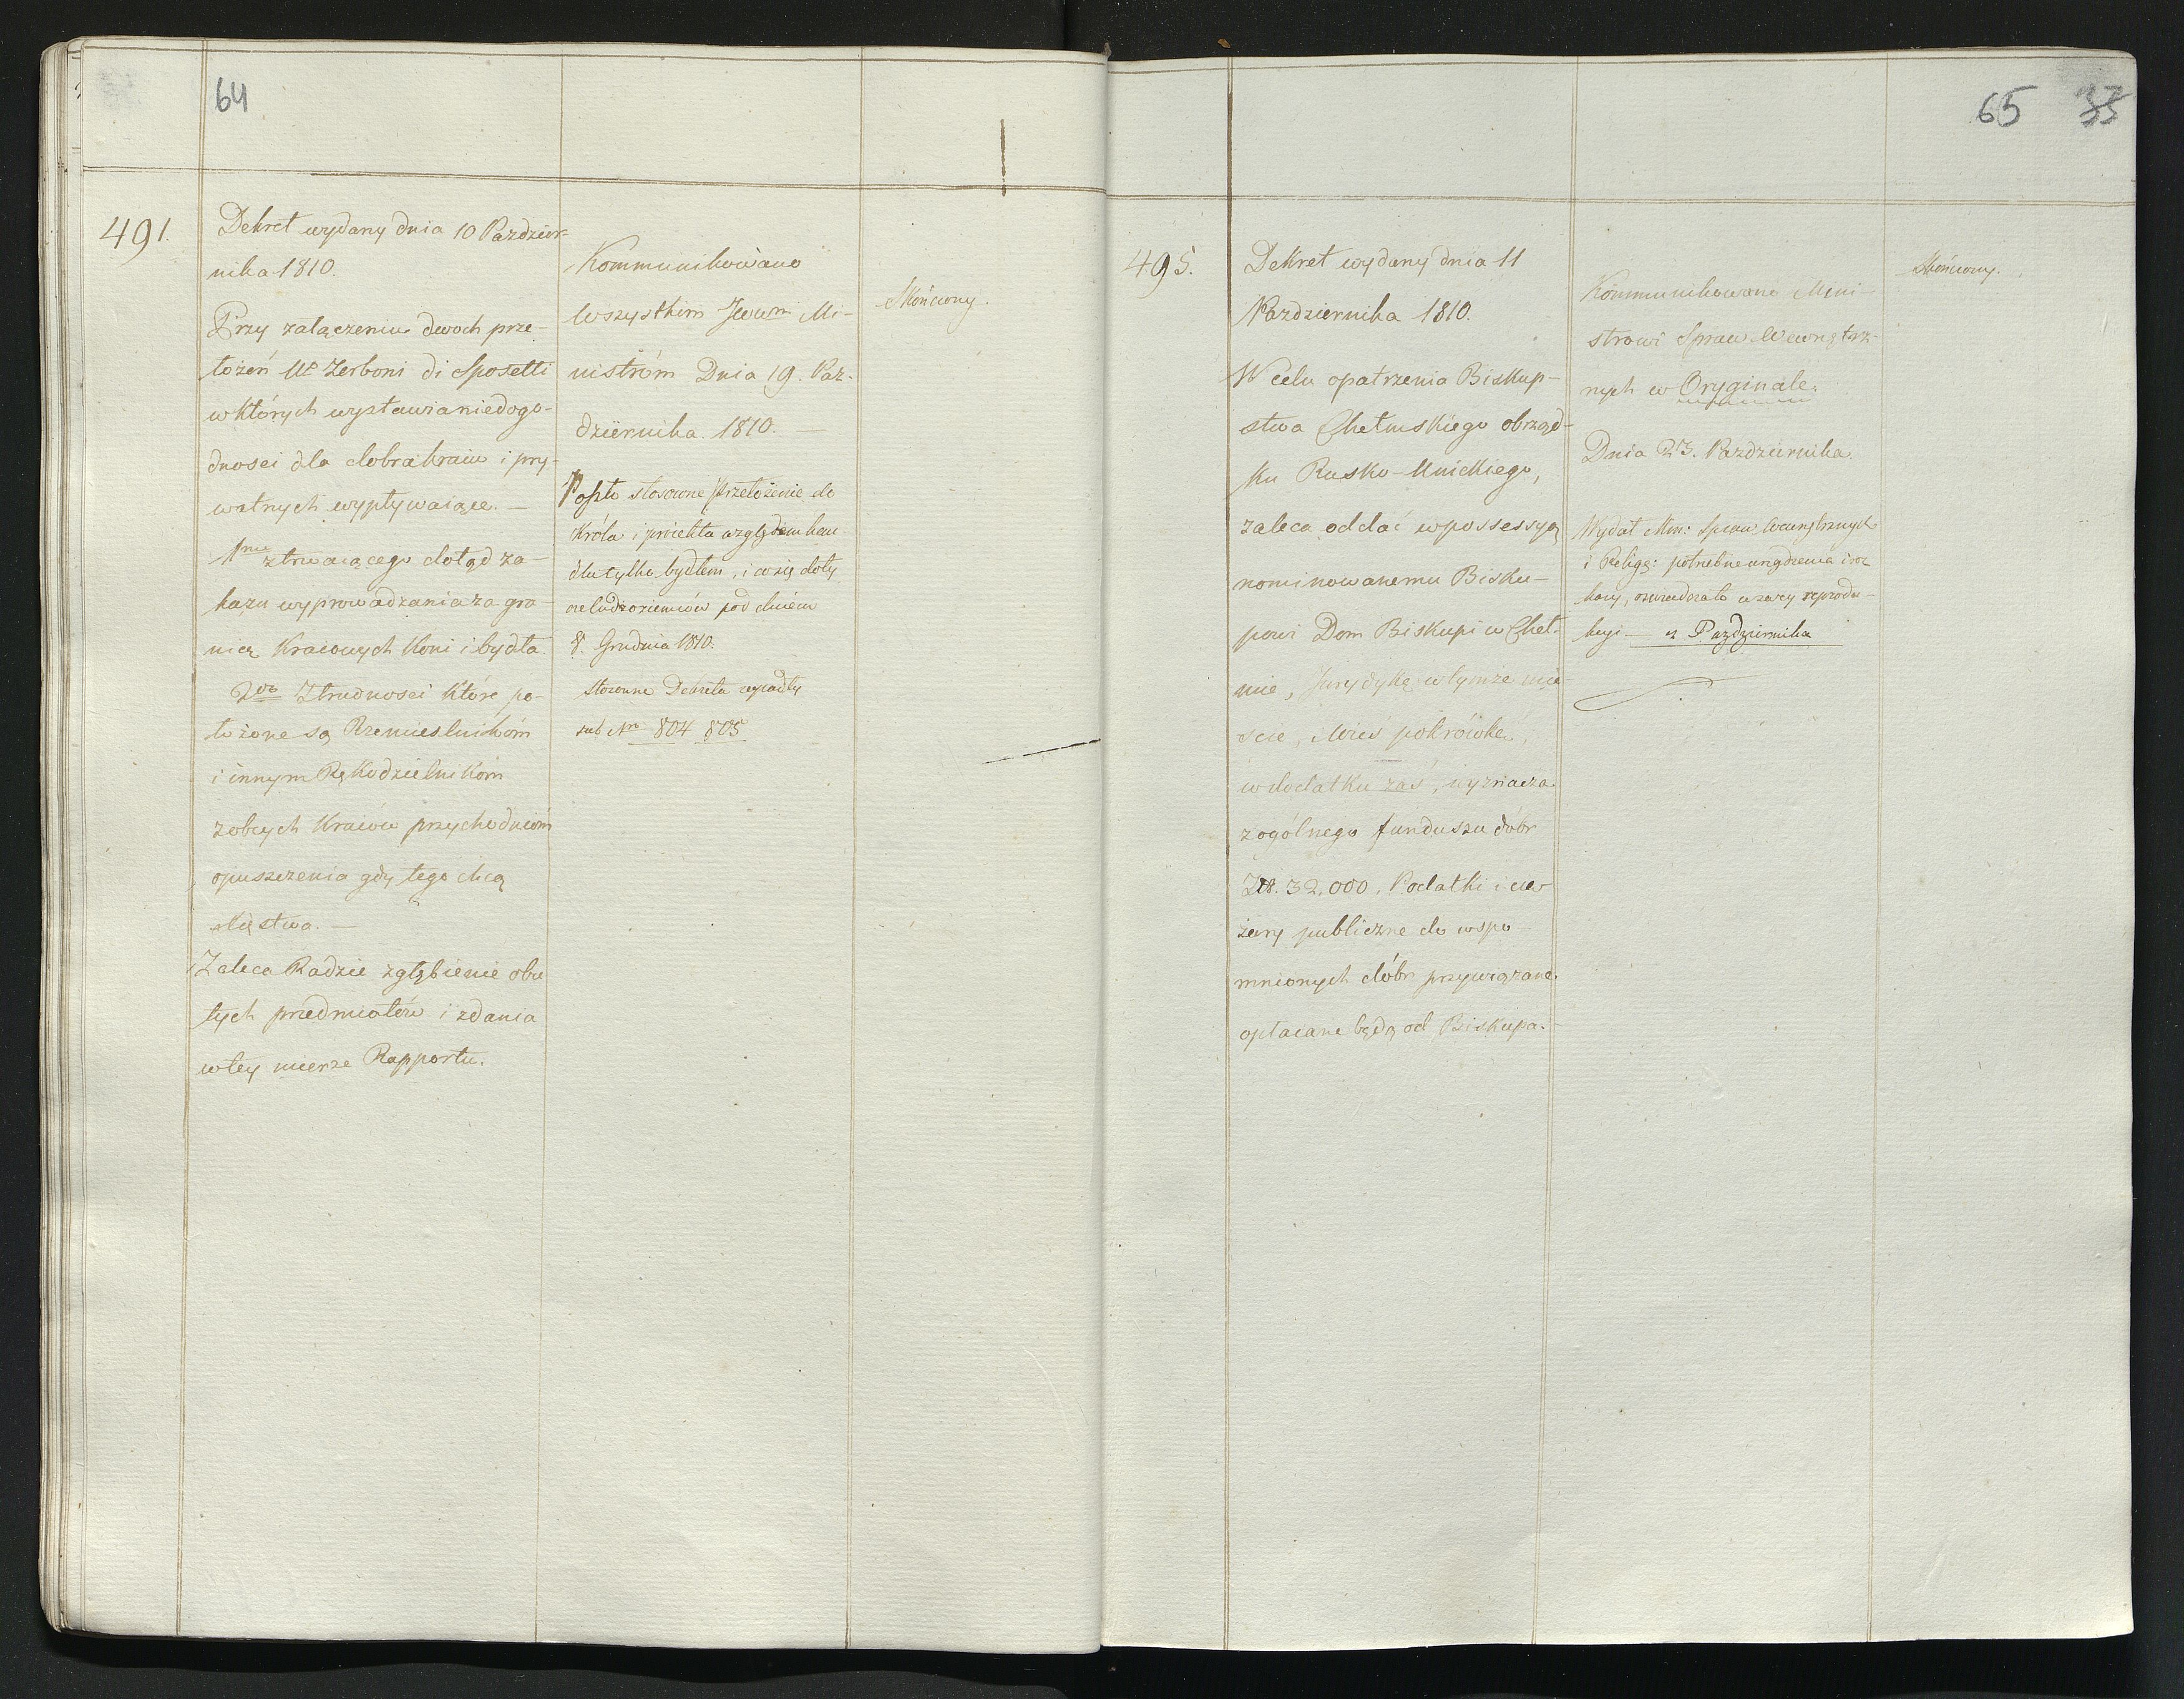 64
491.
Dekret wydany dnia 10 Pazdzier-
nika 1810.
Przy załączeniu dwoch prze-
łożeń Ur Zerboni di Sposetti
w których wystawia niedogo-
dnosci dla dobra kraiu i pry-
watnych wypływaiące. —
1mo z trwaiącego dotąd za-
kazu wyprowadzania za gra-
nicę Kraiowych Koni i bydła
2do Z trudnosci które po-
łożone są Rzemieslnikóm
i innym Rękodzielnikóm
z obcych Kraiów przychodnióm
opuszczenia gdy tego chcą
Xięstwa. —
Zaleca Radzie zgłębienie obu
tych przedmiotów i zdania
w tey mierze Rapportu.
Kommunikowano
wszystkim JWwm Mi-
nistróm Dnia 19. Paz-
dziernika. 1810. —
Poszło stosowne Przełożenie do
Króla i proiekta względem han-
dlu tylko bydłem, i co się doty
cudzoziemców pod dniem
8. Grudnia 1810.
stosowne Dekreta wypadły
sub Nro 804 805
Skończony.
65 33
495.
Dekret wydany dnia 11
Pazdziernika 1810.
W celu opatrzenia Biskup-
stwa Chełmskiego obrząd-
ku Rusko-Unickiego,
zaleca oddać w possessyą
nominowanemu Bisku-
powi Dom Biskupi w Cheł-
mie, Jurydykę w tymże mie-
scie, Wieś pokrówkę,
w dodatku zaś, wyznacza
z ogólnego funduszu dóbr
Zł. 32,000. Podatki i cię-
żary publiczne do wspo-
mnionych dóbr przywiązane
opłacane będą od Biskupa.
Kommunikowano Mini-
strowi Spraw Wewnętrz-
nych w Oryginale.
Dnia 23. Pazdziernika
Wydał Min: Spraw Wewnętrznych
i Religi: potrzebne urządzenia i roz
kazy, oswiadczało w zawy reprodu-
kcyi — Pazdziernika
Skończony.